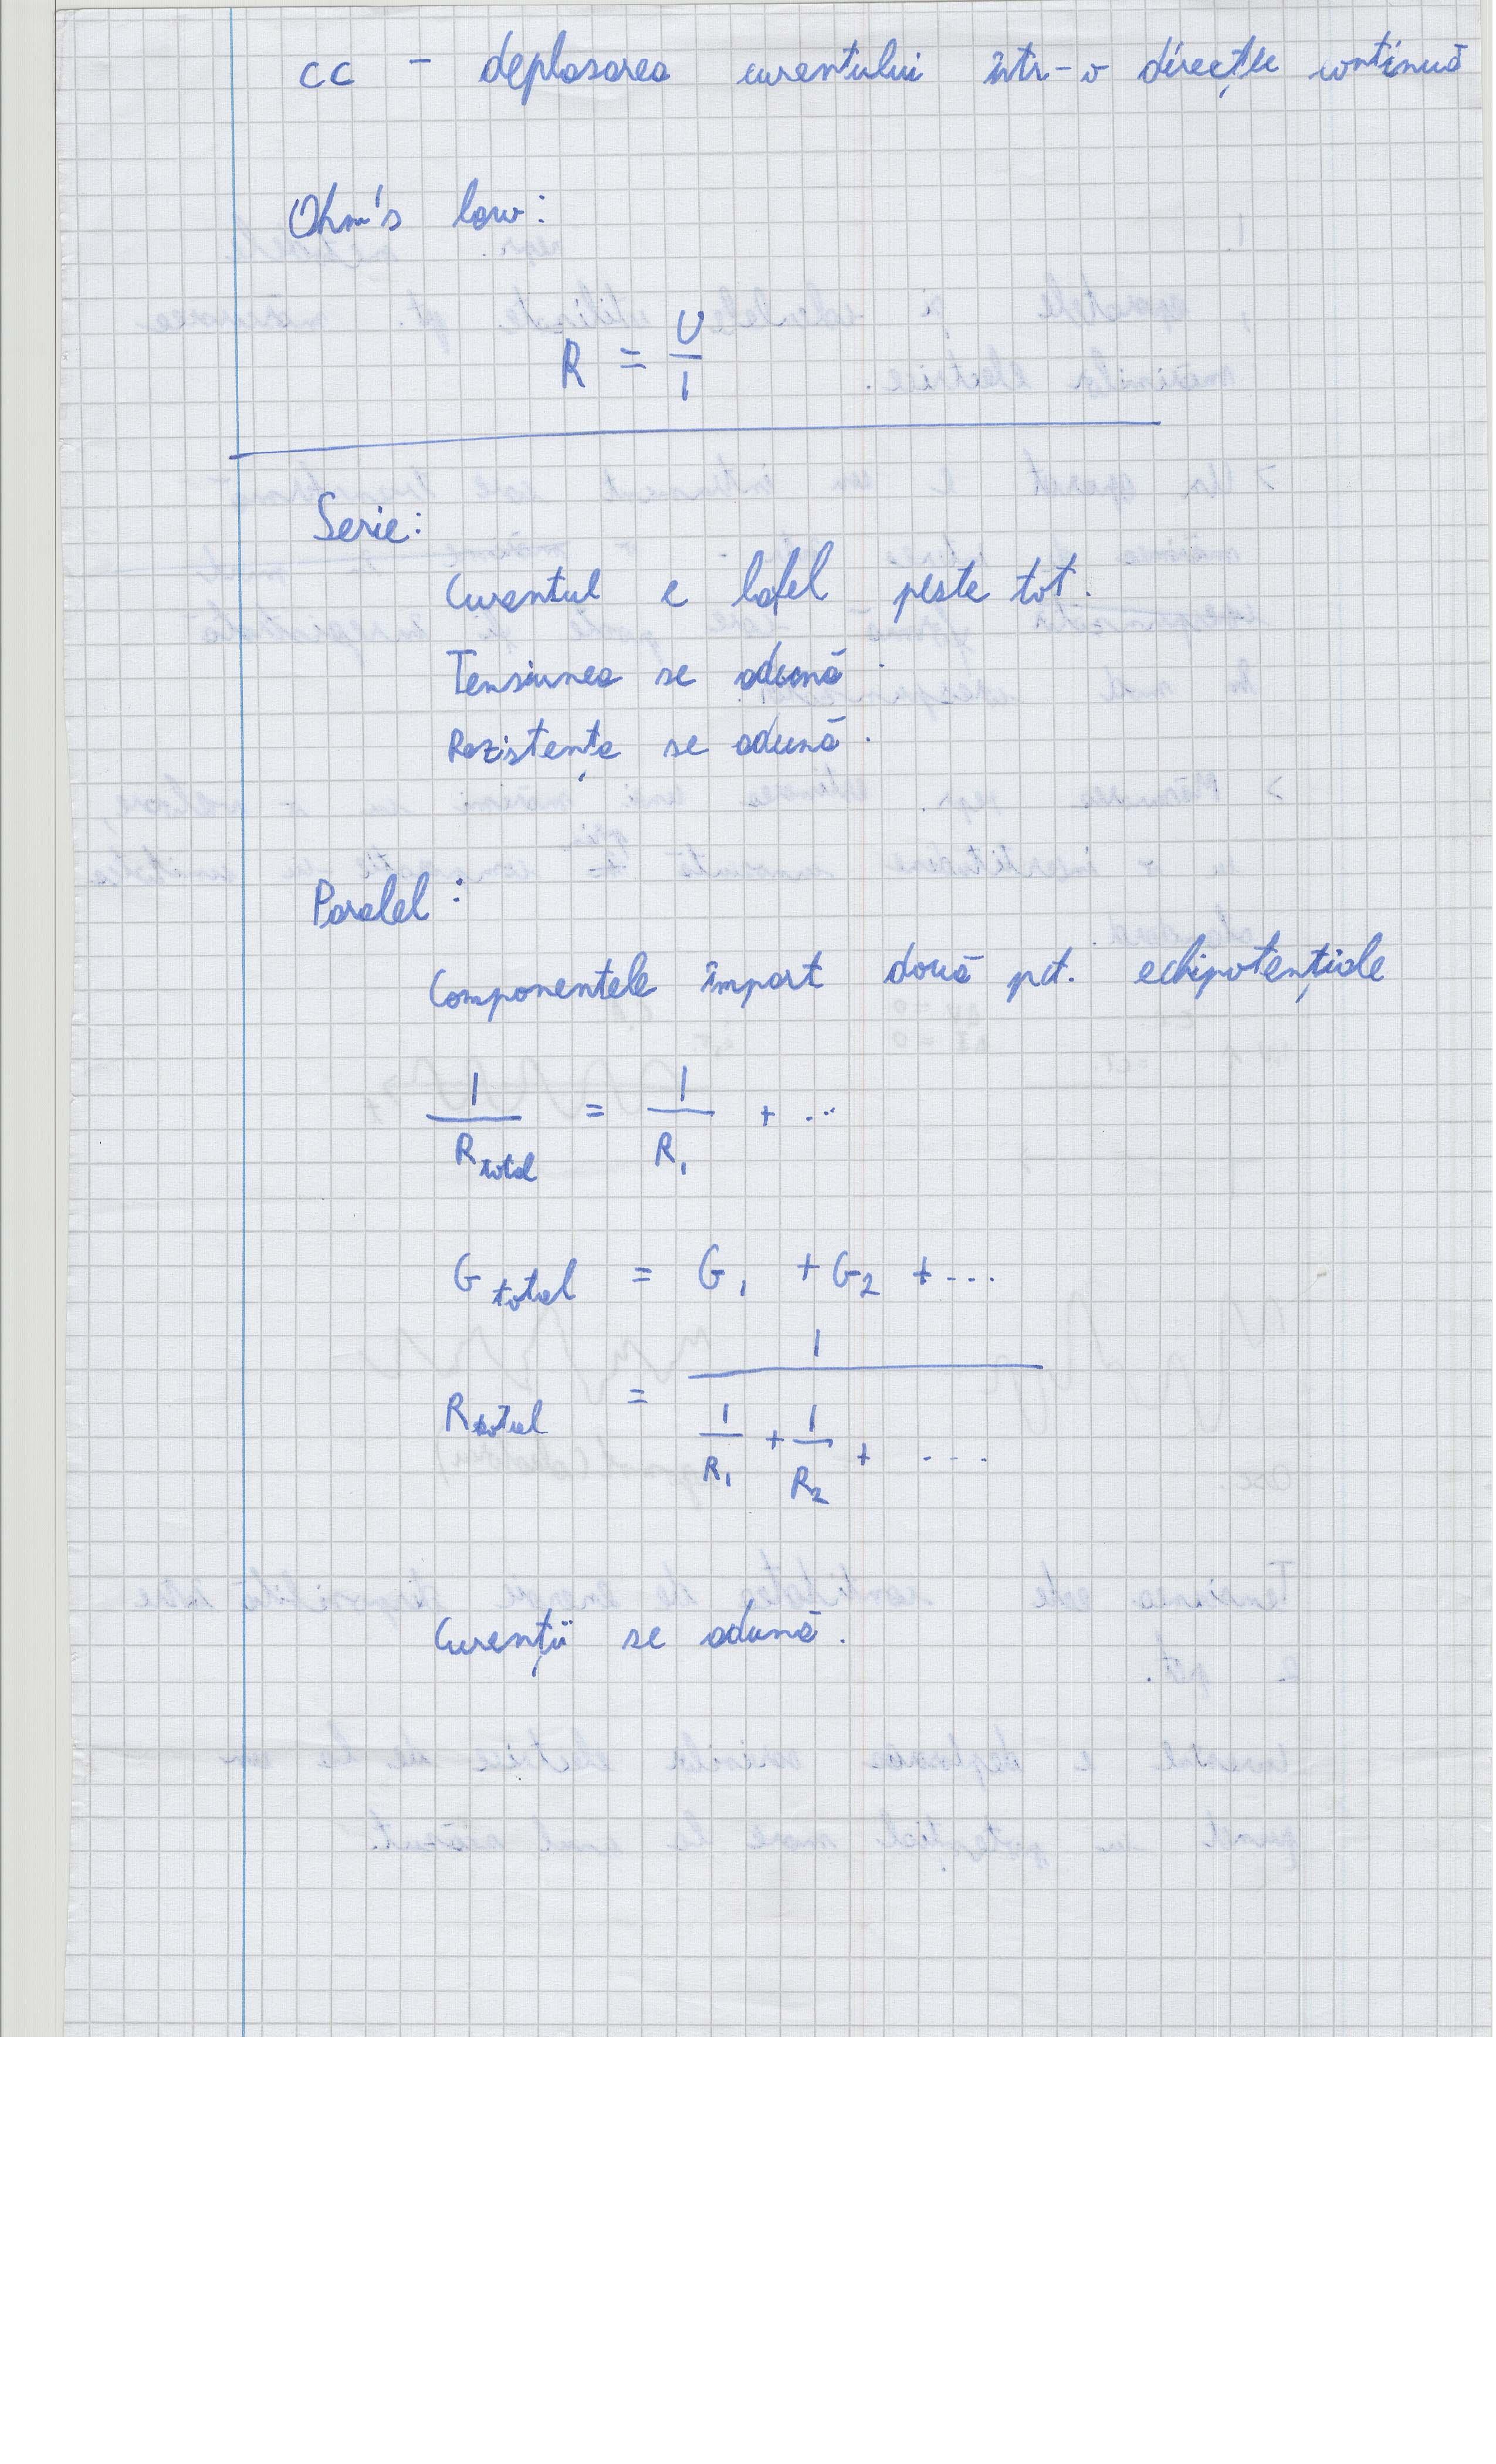 cc - deplasarea curentului într-o direcție continuă
Ohm's law:
R = U/I
Serie:
Curentul e lafel peste tot.
Tensiunea se adună.
Rezistența se adună.
Paralel:
Componentele împart două pct. echipotențiale
1/R total = 1/R1 + ...
G total = G1 + G2 + ...
R total = 1/(1/R1 + 1/R2 + ....)
Curenții se adună.